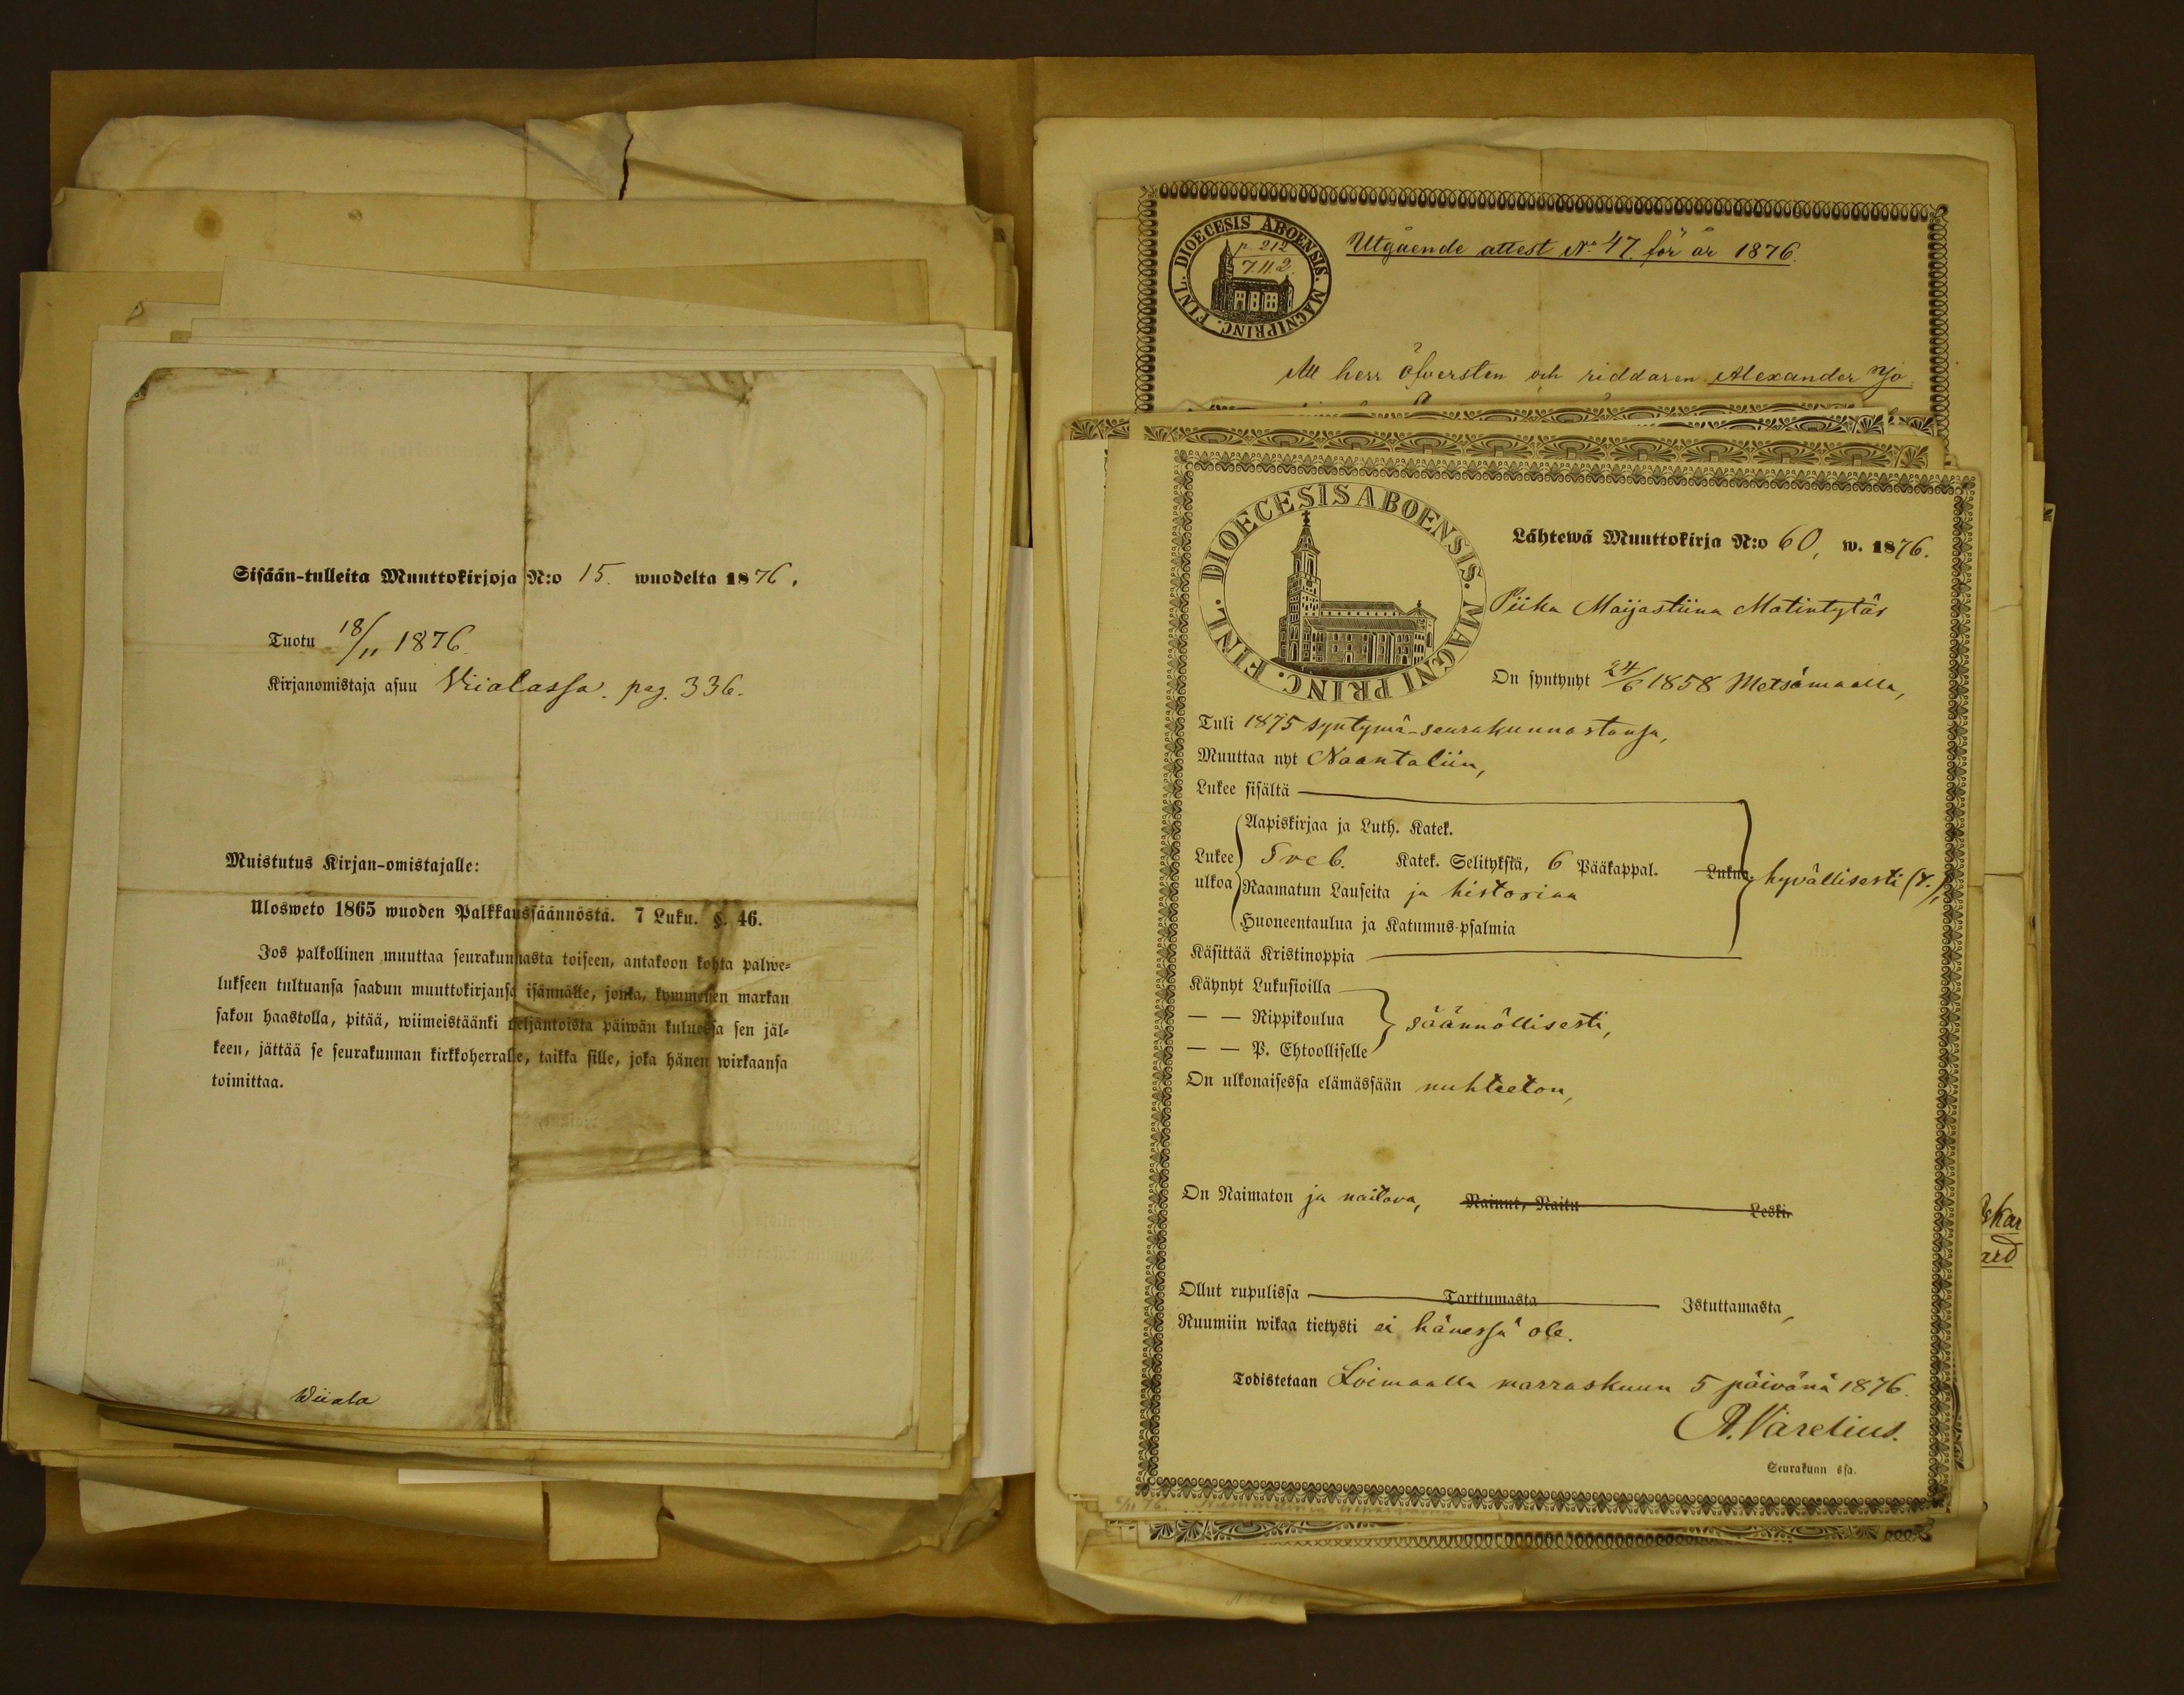 Sisään-tulleita Muuttokirjoja N:o 15. wuodelta 1876.
Tuotu 18/11 1876.
Kirjanomistaja asuu Viialassa. pag. 336.
Muistutus Kirjan-omistajalle:
Ulosweto 1865 wuoden Palkkaussäännöstä. 7 Luku. §. 46.
Jos palkollinen muuttaa seurakunnasta toiseen, antakoon kohta palwe-
lukseen tultuansa saadun muuttokirjansa isännälle, jonka, kymmenen markan
sakon haastolla, pitää, wiimeistäänki neljäntoista päiwän kuluessa sen jäl-
keen, jättää se seurakunnan kirkkoherralle, taikka sille, joka hänen wirkaansa
toimittaa.
Wiiala
DIOECESIS ABOENSIS. MAGNI PRINC. FINL.
p 212
7.11.2.
Utgående attest No 47. för år 1876.
Att herr öfversten och riddaren Alexander
DIOECESIS ABOENSIS. MAGNI PRINC. FINL.
Lähtewä Muuttokirja N:o 60, w. 1876.
Piika Maijastiina Matintytär
On syntynyt 24/6 1858 Metsämaalla,
Tuli 1875 syntymä-seurakunnastansa,
Muuttaa nyt Naantaliin,
Lukee sisältä
Aapiskirjaa ja Luth. Katek.
Lukee ulkoa Sveb. Katek. Selitykstä, 6 Pääkappal. Lukua hyvällisesti
Raamatun Lauseita ja historiaa
Huoneentaulua ja Katumus-psalmia
Käsittää Kristinoppia
Käynyt Lukusioilla
— — Rippikoulua säännöllisesti,
— — P. Ehtoolliselle
On ulkonaisessa elämässään nuhteeton,
On Naimaton ja naitava, Nainut, Naitu Leski
Ollut rupulissa Tarttumasta Istuttamasta,
Ruumiin wikaa tietysti ei hänessä ole.
Todistetaan Loimaalla marraskuun 5 päivänä 1876.
A. Varelius.
Seurakunn ssa.
skar